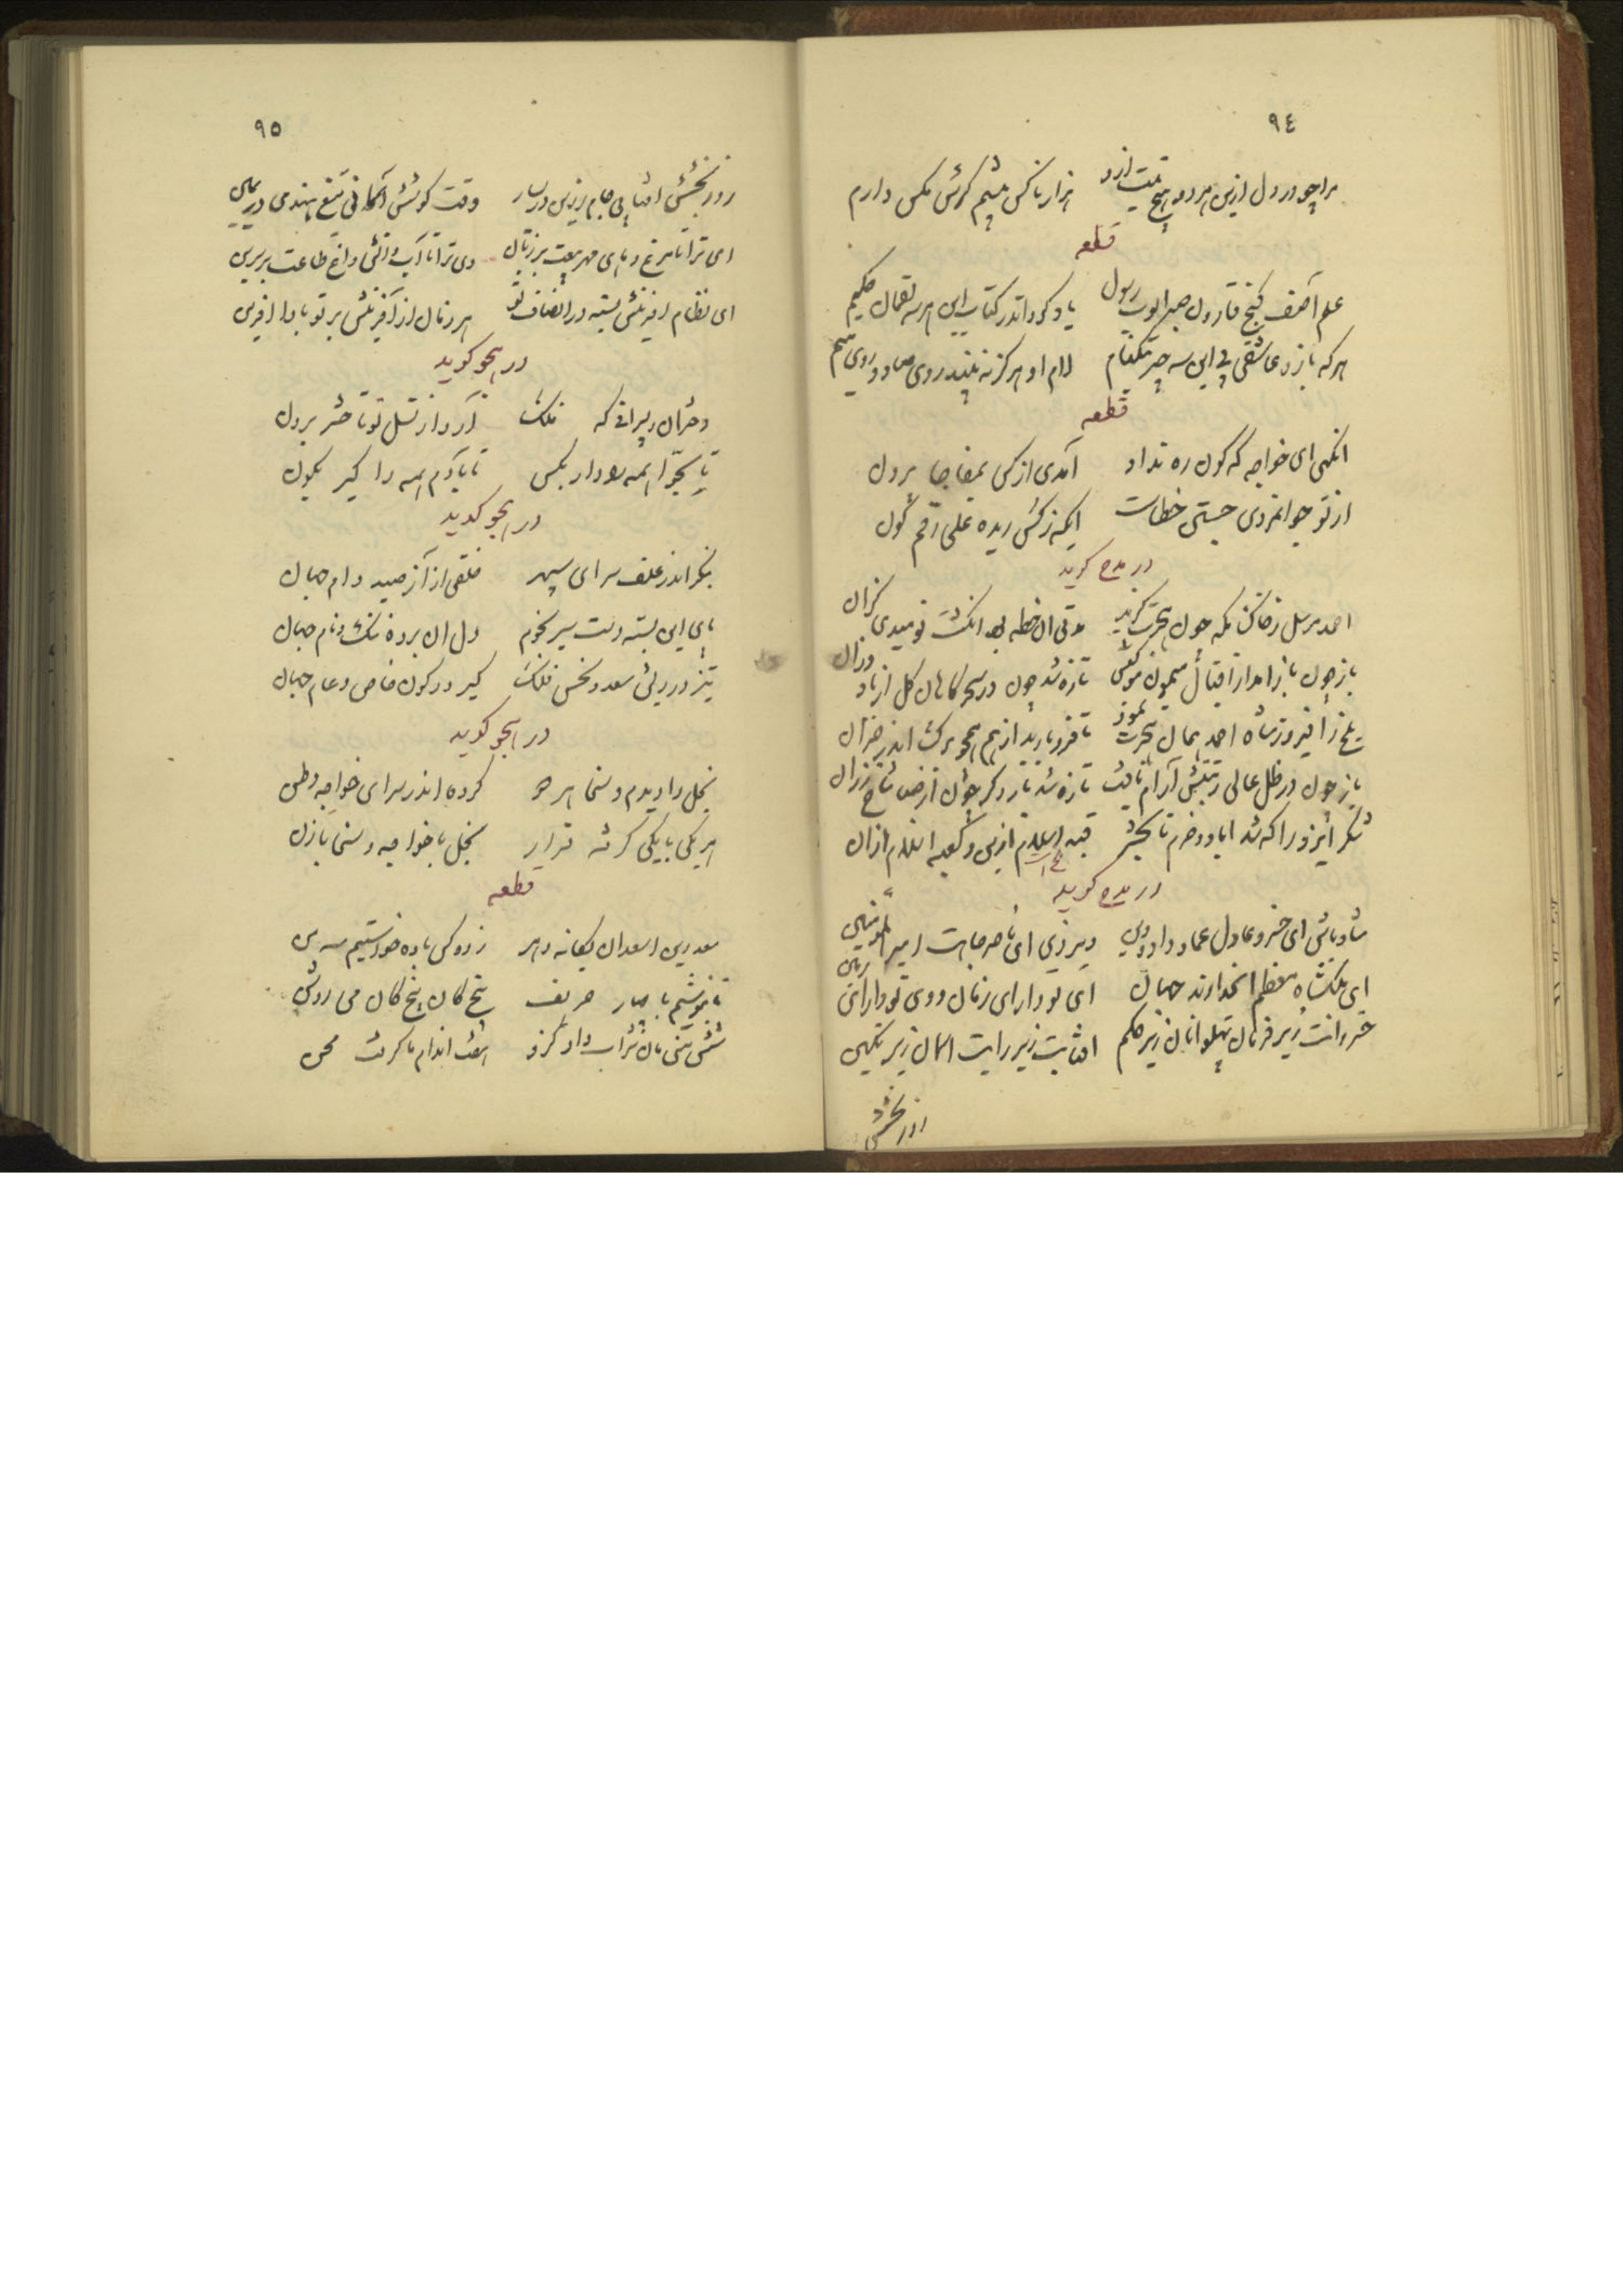 ٩٤
مرا چو در دل ازین هر دو هیچ نیست ازو هزار ناکس پیشم کرش مکس دارم
قطعه
علم آصف گنج قارون صبر ایوب رسول یاد کرد اندر کتاب این هرسه لقمان حکیم
هرکه بازد عاشقی بی این سه چیز لام او هرگز نه بیند روی صاد و روی میم
قطعه
ای خواجه که گون ره نداد آمدی از کس بمفاجا برون
از تو جوانمردی جستن خطاست ایکه ز کس ریده علی رغم گون
در مدح گوید
احمد مرسل ز خاک مکه چون هجرت گزید مدتی آن خطه بد
باز چون باز آمد از اقبال میمون موکبش تازه شد چون در سحرگاهان گل از باد وزان
بلخ را فیروز شاه احمد بمال هجرت نمود تا فرو بارید از هم همچو برک اندر خزان
باز چون در ظل عالی رتبتش آرام یافت تازه شد بار دگر چون از صبا شاخ رزان
شکر ایزد را که شد اباد و خرم تا بحشر قبه اسلام ازین و کعبه اسلام ازان
در مدح گوید
شاد باش ای خسرو عادل عماد داد و دین دیر زی ای ناصر جاهت امیر المومنین
ای ملکشاه معظم ای خداوند جهان ای تو دارای زمان و وی تو دارای زمین
خسروانت زیر فرمان پهلوانان زیر حکم افتابت زیر رایت اسمان زیر نگین
روز بخشش
٩٥
روز بخشش افتابی جام زرین در یسار وقت کوشش اسمانی تیغ هندی در یمین
ای ترا تا مرغ و ماهی مهر بیعت بر زبان وی ترا تا آب و آتش داغ طاعت بر سرین
ای نظام افرینش بسته در انصاف تو هر زمان از آفرینش بر تو بادا افرین
در هجو گوید
دختران و پسرانی که فلک آرد از نسل تو تا حشر برون
تا بحوا همه روداربکس تا بآدم همه را کیر بکون
در هجو گوید
بنگر اندر علف سرای سپهر خلقی از آز صید دام جهان
پای این بسته دست سیر نجوم دل ان برده ننگ و نام جهان
تیز در ریش سعد و نحس فلک کیر در کون خاص و عام جهان
در هجو گوید
بخل را دیدم و سخا هر دو کرده اندر سرای خواجه وطن
هر یکی با یکی گرفته قرار بخل با خواجه و سخا با زن
قطعه
سعد دین اسعد ان یگانه دهر زو دو کس باده خواستیم سه من
تا بنوشیم با چهار حریف پنج گان پنج گان می روشن
شش منی مان شراب داد کزو هفت اندام ما گرفت محن